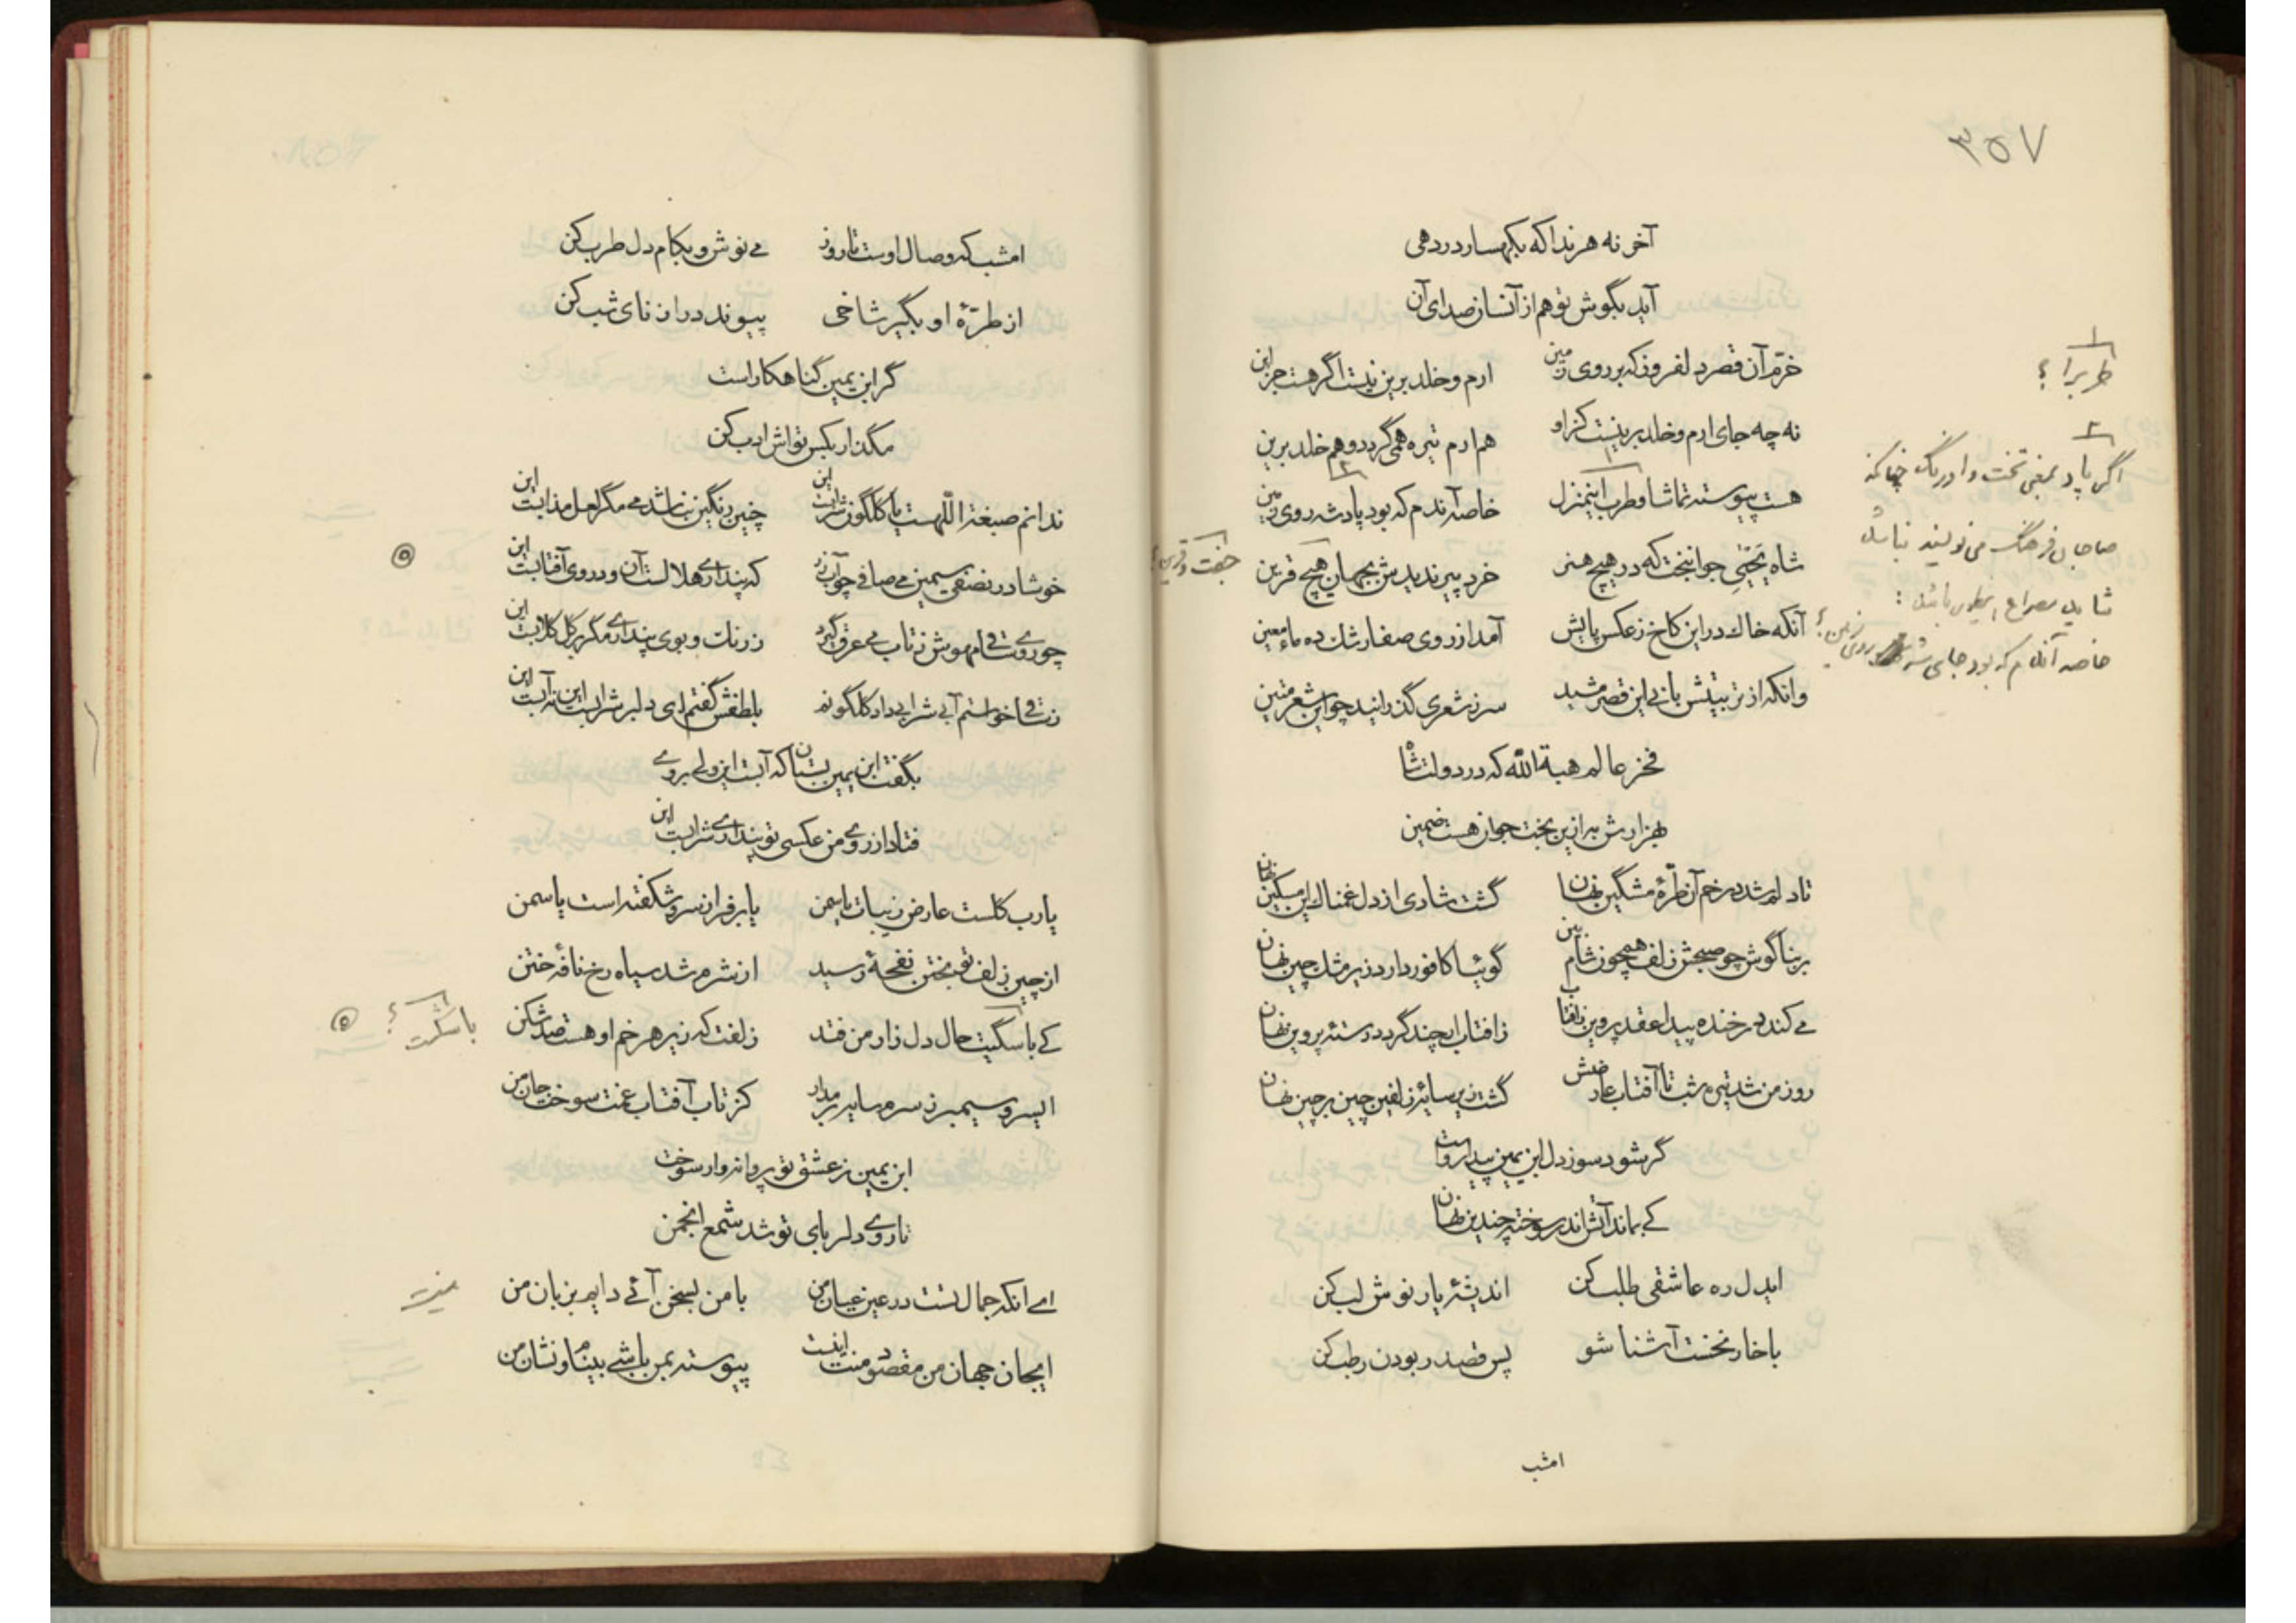 ۳۵۷
آخر نه هر ندا که بکهسار در دهی
آید بگوش تو هم از آنسان صدای آن
خرّم آن قصر دلفروز که بر روی زمین ارم و خلد برین نیست اگر هست جز این
نه چه جای ارم و خلد برینست کز او هم ارم تیره همی گردد و هم خلد برین
هست پیوسته تماشا و طرب اینمنزل خاصه آندم که بود پادشه روی زمین
شاه یحیی جوانبخت که در هیچ هنر خرد پیر ندیدش بجهان هیچ قرین
آنکه خاک در این کاخ ز عکس پایش آمد از روی صفا رشک ده ماء معین
وانکه از تربیتش بانی این قصر مشید سر ز شعری گذرانید چو این شعر متین
فخر عالم هبة الله که در دولت شاه
بهزارش به ازین بخت جوان هست ضمین
تا دلم شد در خم آن طرّهٔ مشگین نهان گشت شادی از دل غمناک این مسکین نهان
بر بناگوش چو صبحش زلف همچون شام بین گوئیا کافور دارد زیر مشک چین نهان
می کند در خنده پیدا عقد پروین ز آفتاب ز آفتاب ار چند گردد رستهٔ پروین نهان
روز من شد تیره شب تا آفتاب عارضش گشت زیر سایهٔ زلفین چین بر چین نهان
گر شود سوز دل ابن یمین پیدا رواست
کی بماند آتش اندر سوخته چندین نهان
ایدل ره عاشقی طلب کن اندیشهٔ یار نوش لب کن
با خار نخست آشنا شو پس قصد ربودن رطب کن
امشب
۱
طربرا ؟
۲
اگر پاد بمعنی تخت و اورنگ چنانکه
صاحبان فرهنگ می نویسند نباشد
شاید مصراع اینطور باشد :
خاصه آندم که بود جای شه روی زمین ؟
جفت و قرین ؟
امشب که وصال اوست تا روز می نوش و بکام دل طرب کن
از طرّهٔ او بگیر شاخی پیوند درازنای شب کن
گر ابن یمین گناهکار است
مگذار بکس تواش ادب کن
ندانم صبغة اللّهست یا گلگون شرابست این چنین رنگین نباشد می مگر لعل مذابست این
خوشا در نصفی سیمین می صافی چو آب زر که پنداری هلالست آن و در وی آفتابست این
چو روی ساقی مهوش ز تاب می عرق گیرد ز رنگ و بوی پنداری مگر بر گل گلابست این
ز ساقی خواستم آبی شرابی داد گلگونم بلطفش گفتم ای دلبر شرابست این نه آبست این
بگفت ابن یمین بستان که آبست این ولی بر وی
فتاد از روی من عکسی تو پنداری شرابست این
یا رب گلست عارض زیبات یا سمن یا بر فراز سرو شکفته است یاسمن
از چین زلف تو بختن نفحهٔ رسید از شرم شد سیاه رخ نافهٔ ختن
کی با سگیت حال دل زار من فتد زلفت که زیر هر خم او هست صد شکن
ایسرو سیمبر ز سرم سایه بر مدار کز تاب آفتاب غمت سوخت جان من
ابن یمین ز عشق تو پروانه وار سوخت
تا روی دلربای تو شد شمع انجمن
ای آنکه جمال تست در عین عیان من با من بسخن آئی دایم بزبان من
ایجان جهان من مقصود منت اینست پیوسته بمن باشی بینام و نشان من